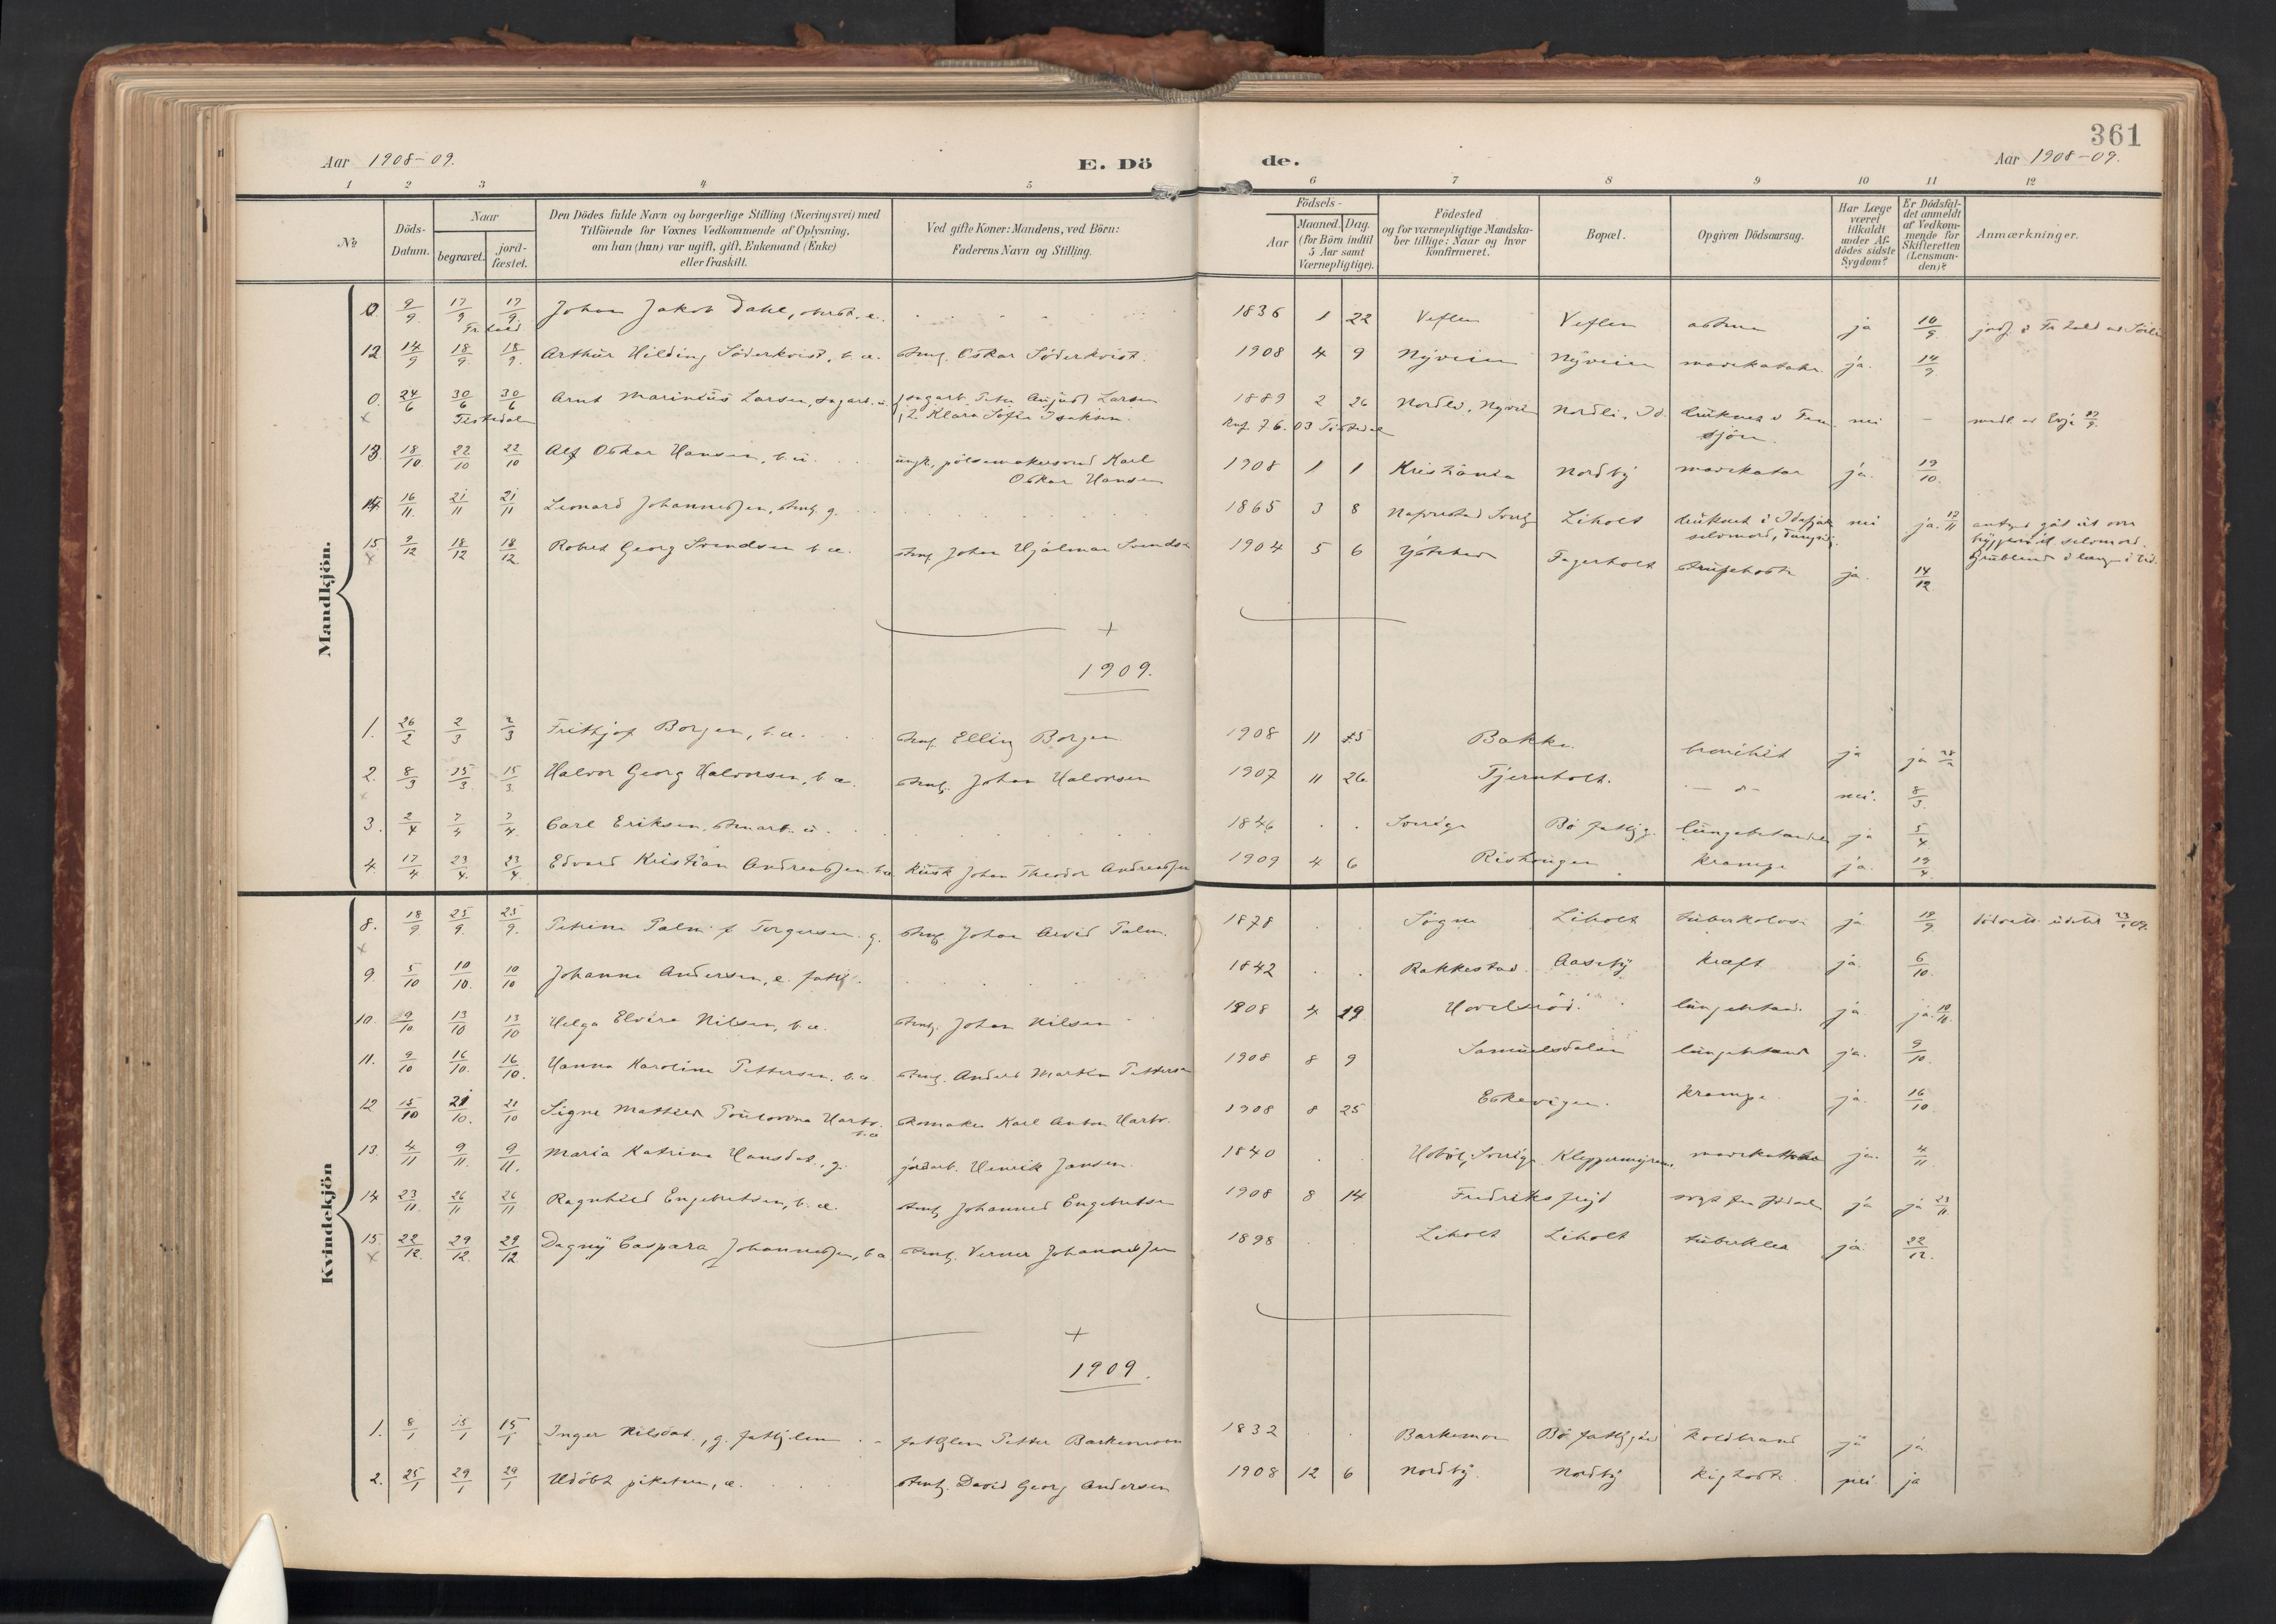 361
Aar 1908-09. E. Dö de. Aar 1908-09.
1 2 3 4 5 6 7 8 9 10 11 12
No
Döds-Datum.
Naar
begravet. jord-fæstet.
Den Dödes fulde Navn og borgerlige Stilling (Næringsvei) med
Tilföiende for Voxnes Vedkommende af Oplysning,
om han (hun) var ugift, gift, Enkemand (Enke)
eller fraskilt.
Ved gifte Koner: Mandens, ved Börn:
Faderens Navn og Stilling.
Födsels-
Aar Maaned. Dag.
(for Börn indtil
5 Aar samt
Værnepligtige).
Födested
og for værnepligtige Mandska-
ber tillige: Naar og hvor
Konfirmeret.
Bopæl.
Opgiven Dödsaarsag.
Har Læge
været
tilkaldt
under Af-
dödes sidste
Sygdom?
Er Dödsfal-
det anmeldt
af Vedkom-
mende for
Skifteretten
(Lensman-
den)?
Anmærkninger.
Mandkjön.
0. 9/9 17/9 17/9 Johan Jakob Dahl, e. 1836 1 22 Veflen Veflen ja 10/9
12 14/9 18/9 18/9 Arthur Hilding Söderkvist, b. æ. Oskar Söderkvist. 1908 4 9 Nyveien Nyveien mavekatahr ja. 14/9
0. 24/6 30/6 30/6 Arnt Marinius Larsen, sagarb. u. 1 sagarb. Larsen 1889 2 26 Nordli, Nordli, Id. nei -
x Tistedalen 2. Klara Sofie Isaksen. 7.6.03 Tistedal sjön.
13 18/10 22/10 22/10 Alf Oskar Hansen, b. u. ungk., pölsemakersvend Karl 1908 1 1 Kristiania Nordby mavekatar ja. 19/10
Oskar Hansen
14 16/11 21/11 21/11 Leonard Johannessen, g. 1865 3 8 Liholt druknet i nei ja. 17/11 antages gåt ut over
selvmord,
15 9/12 18/12 18/12 Robert Georg Svendsen b. æ. Johan Hjalmar Svendsen 1904 5 6 Fagerholt strupehoste ja. 14/12
x
1909.
1. 26/2 2/3 2/3 Frithjof Borgen, b. æ. Elling Borgen 1908 11 25 Bakke bronchit ja ja
2. 8/3 15/3 15/3 Halvor Georg Halvorsen, b. æ. Johan Halvorsen 1907 11 26 Tjernholt. nei. 8/3
3. 2/4 7/4 7/4 Carl Eriksen, u. 1846 Sverige Bö fattigg. lungebetændelse ja 5/4
4. 17/4 23/4 23/4 Edvard Kristian Andreassen b. æ. Kusk Johan Theodor Andreassen 1909 4 6 Rishaugen krampe ja. 19/4
Kvindekjön
8. 18/9 25/9 25/9 Petrine Palm f. Torgersen. g. Johan Arvid Palm. 1878 Sogne Liholt tuberkolose ja 19/9
x
9. 5/10 10/10 10/10 Johanne Andersen, e. fattig. 1842 Rakkestad Aaseby Kræft ja 6/10
10. 9/10 13/10 13/10 Helga Elvira Nilsen, b. æ. Johan Nilsen 1908 4 19 Hovelsröd. lungebetænd. ja ja
11. 9/10 16/10 16/10 Hanna Karoline Pettersen. b. æ. Anders Martin Pettersen 1908 8 9 Samuelsdalen lungebetænd ja. 9/10
12 15/10 21/10 21/10 Signe Mathilde Harbo. b. æ. Skomaker Karl Anton Harbo. 1908 8 25 Eskevigen. Krampe. ja. 16/10
13. 4/11 9/11 9/11 Maria Katrine Hansdat., g. jordarb. Henrik Jansen. 1840 Sverige Kleppermyren. mavekatahr ja. 4/11
14 23/11 26/11 26/11 Ragnhild Engebretsen, b. æ. Johannes Engebretsen 1908 8 14 Fredriksfryd svag fra födsel ja ja 23/11
15. 22/12 29/12 29/12 Dagny Caspara Johannessen, b. æ. Verner Johannessen 1898 Liholt Liholt tuberkler ja. 22/12
x
1909.
1. 8/1 15/1 15/1 Inger Nilsdat., g. fattiglem fattiglem Petter Barkemoen 1832 Barkemoen Bö fattiggård Koldbrand ja ja.
2. 25/1 29/1 29/1 Udöbt pikebarn, æ. David Georg Andersen 1908 12 6 Nordby. Nordby kighoste nei ja